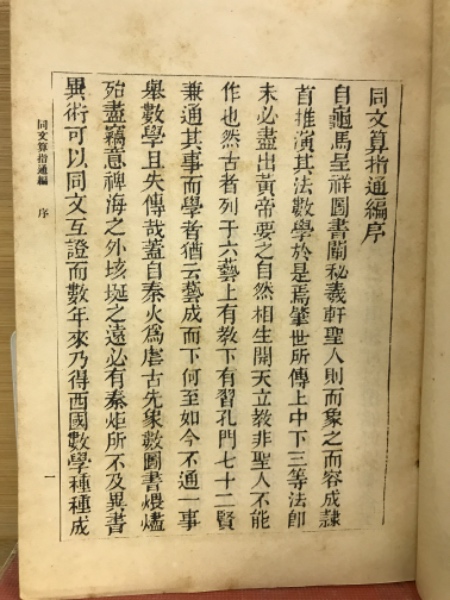 同文算指通編序
自龜馬呈祥圖書闡秘羲軒聖人則而象之而容成隷
首推演其法數學於是焉肇世所傳上中下三等法卽
未必盡出黃帝要之自然相生開天立教非聖人不能
作也然古者列于六藝上有教下有習孔門七十二賢
兼通其事而學者猶云藝成而下何至如今不通一事
舉數學且失傳哉蓋自秦火爲虐古先象數圖書煨燼
殆盡竊意裨海之外垓埏之遠必有秦炬所不及異書
異術可以同文互證而數年來乃得西國數學種種成
同文算指通編　序
一